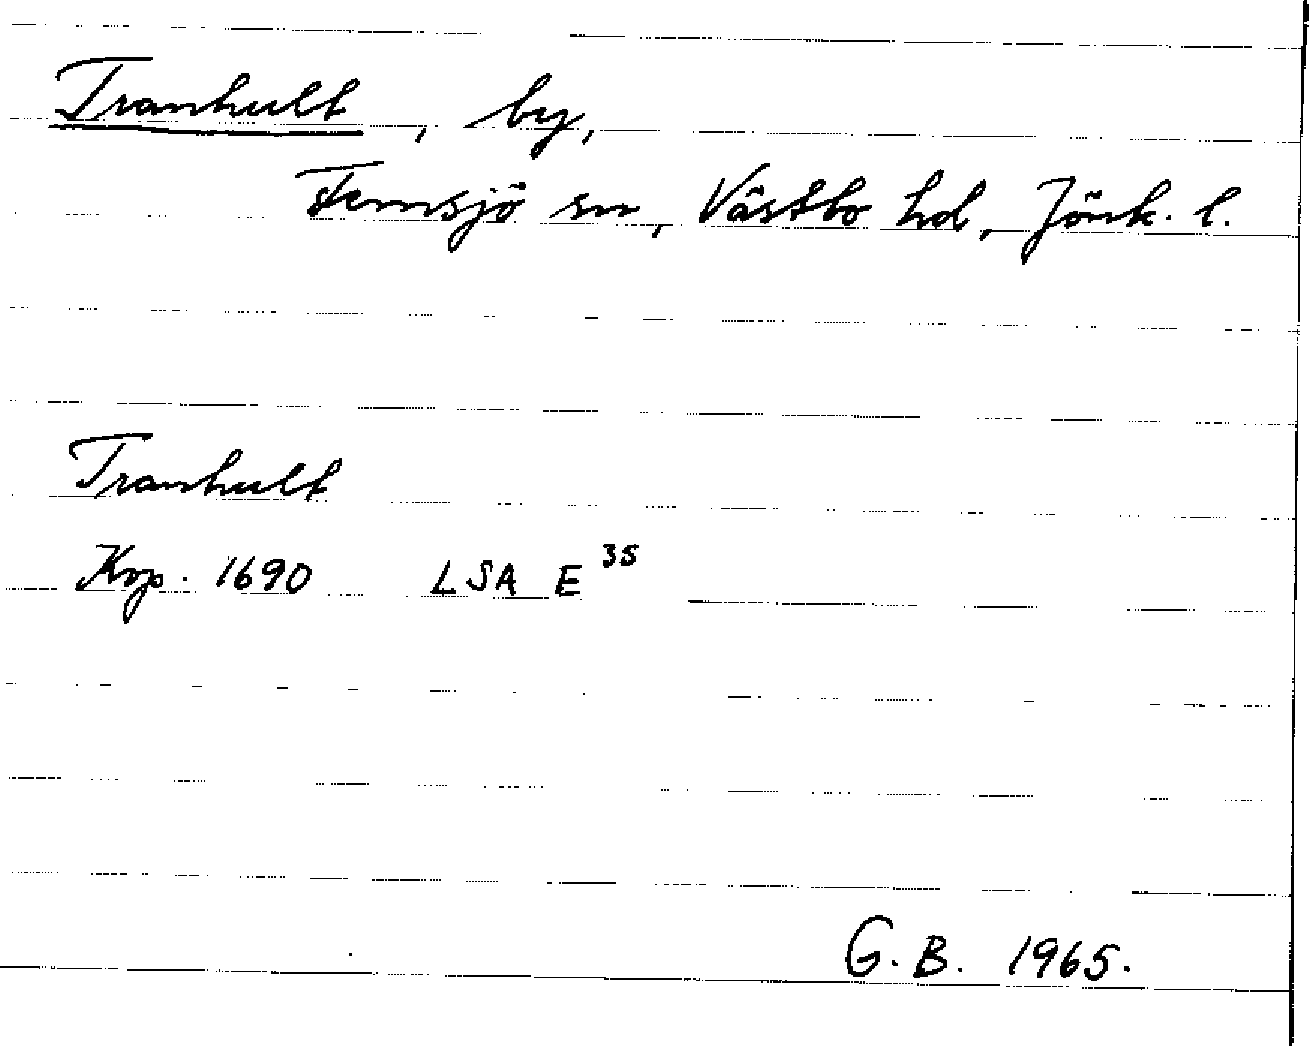 Tranhult, by,
Femsjö sn, Västbo hd, Jönk. l.
Tranhult
Kop. 1690 LSA E 35
G. B. 1965.